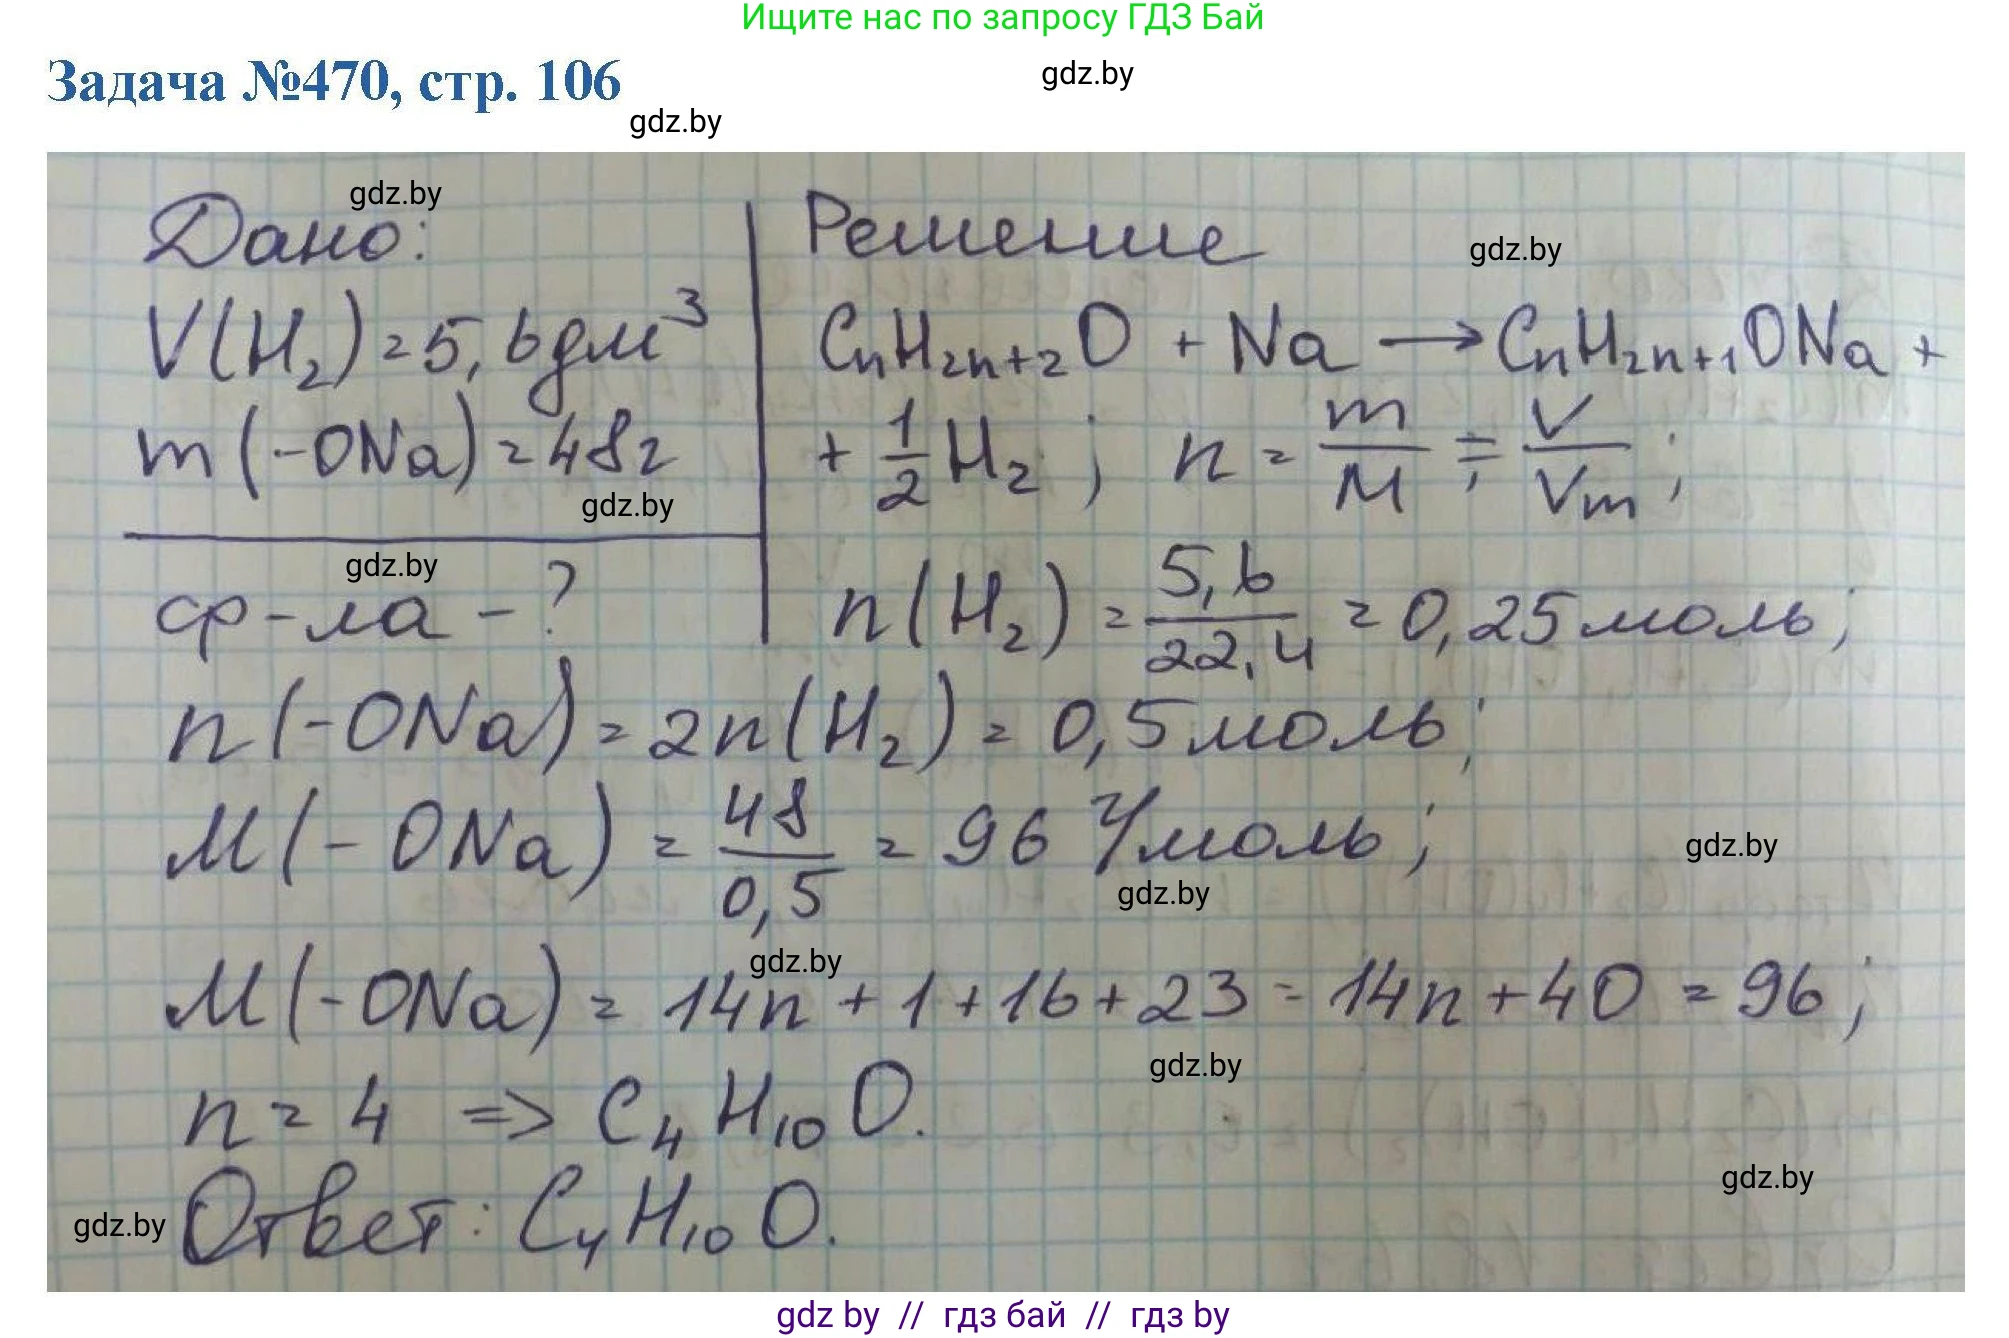 Ищите нас по запросу ГДЗ Бай
Задача №470, стр. 106
gdz.by
gdz.by
gdz.by
Дано:
V(H₂)=5,6дм³
m(-ONa)=48г
gdz.by
gdz.by
ср-ла-?
Решение
gdz.by
CnH2n+2O + Na → CnH2n+1ONa +
+ 1/2 H₂; n = m/M; = V/Vm;
n(H₂) = 5,6/22,4 = 0,25моль;
n(-ONa) = 2n(H₂) = 0,5моль;
M(-ONa) = 48/0,5 = 96 г/моль;
gdz.by
gdz.by
gdz.by
M(-ONa) = 14n + 1 + 16 + 23 = 14n + 40 = 96;
gdz.by
n = 4 => C₄H₁₀O.
gdz.by
gdz.by
Ответ: C₄H₁₀O.
gdz by // гдз бай // гдз by